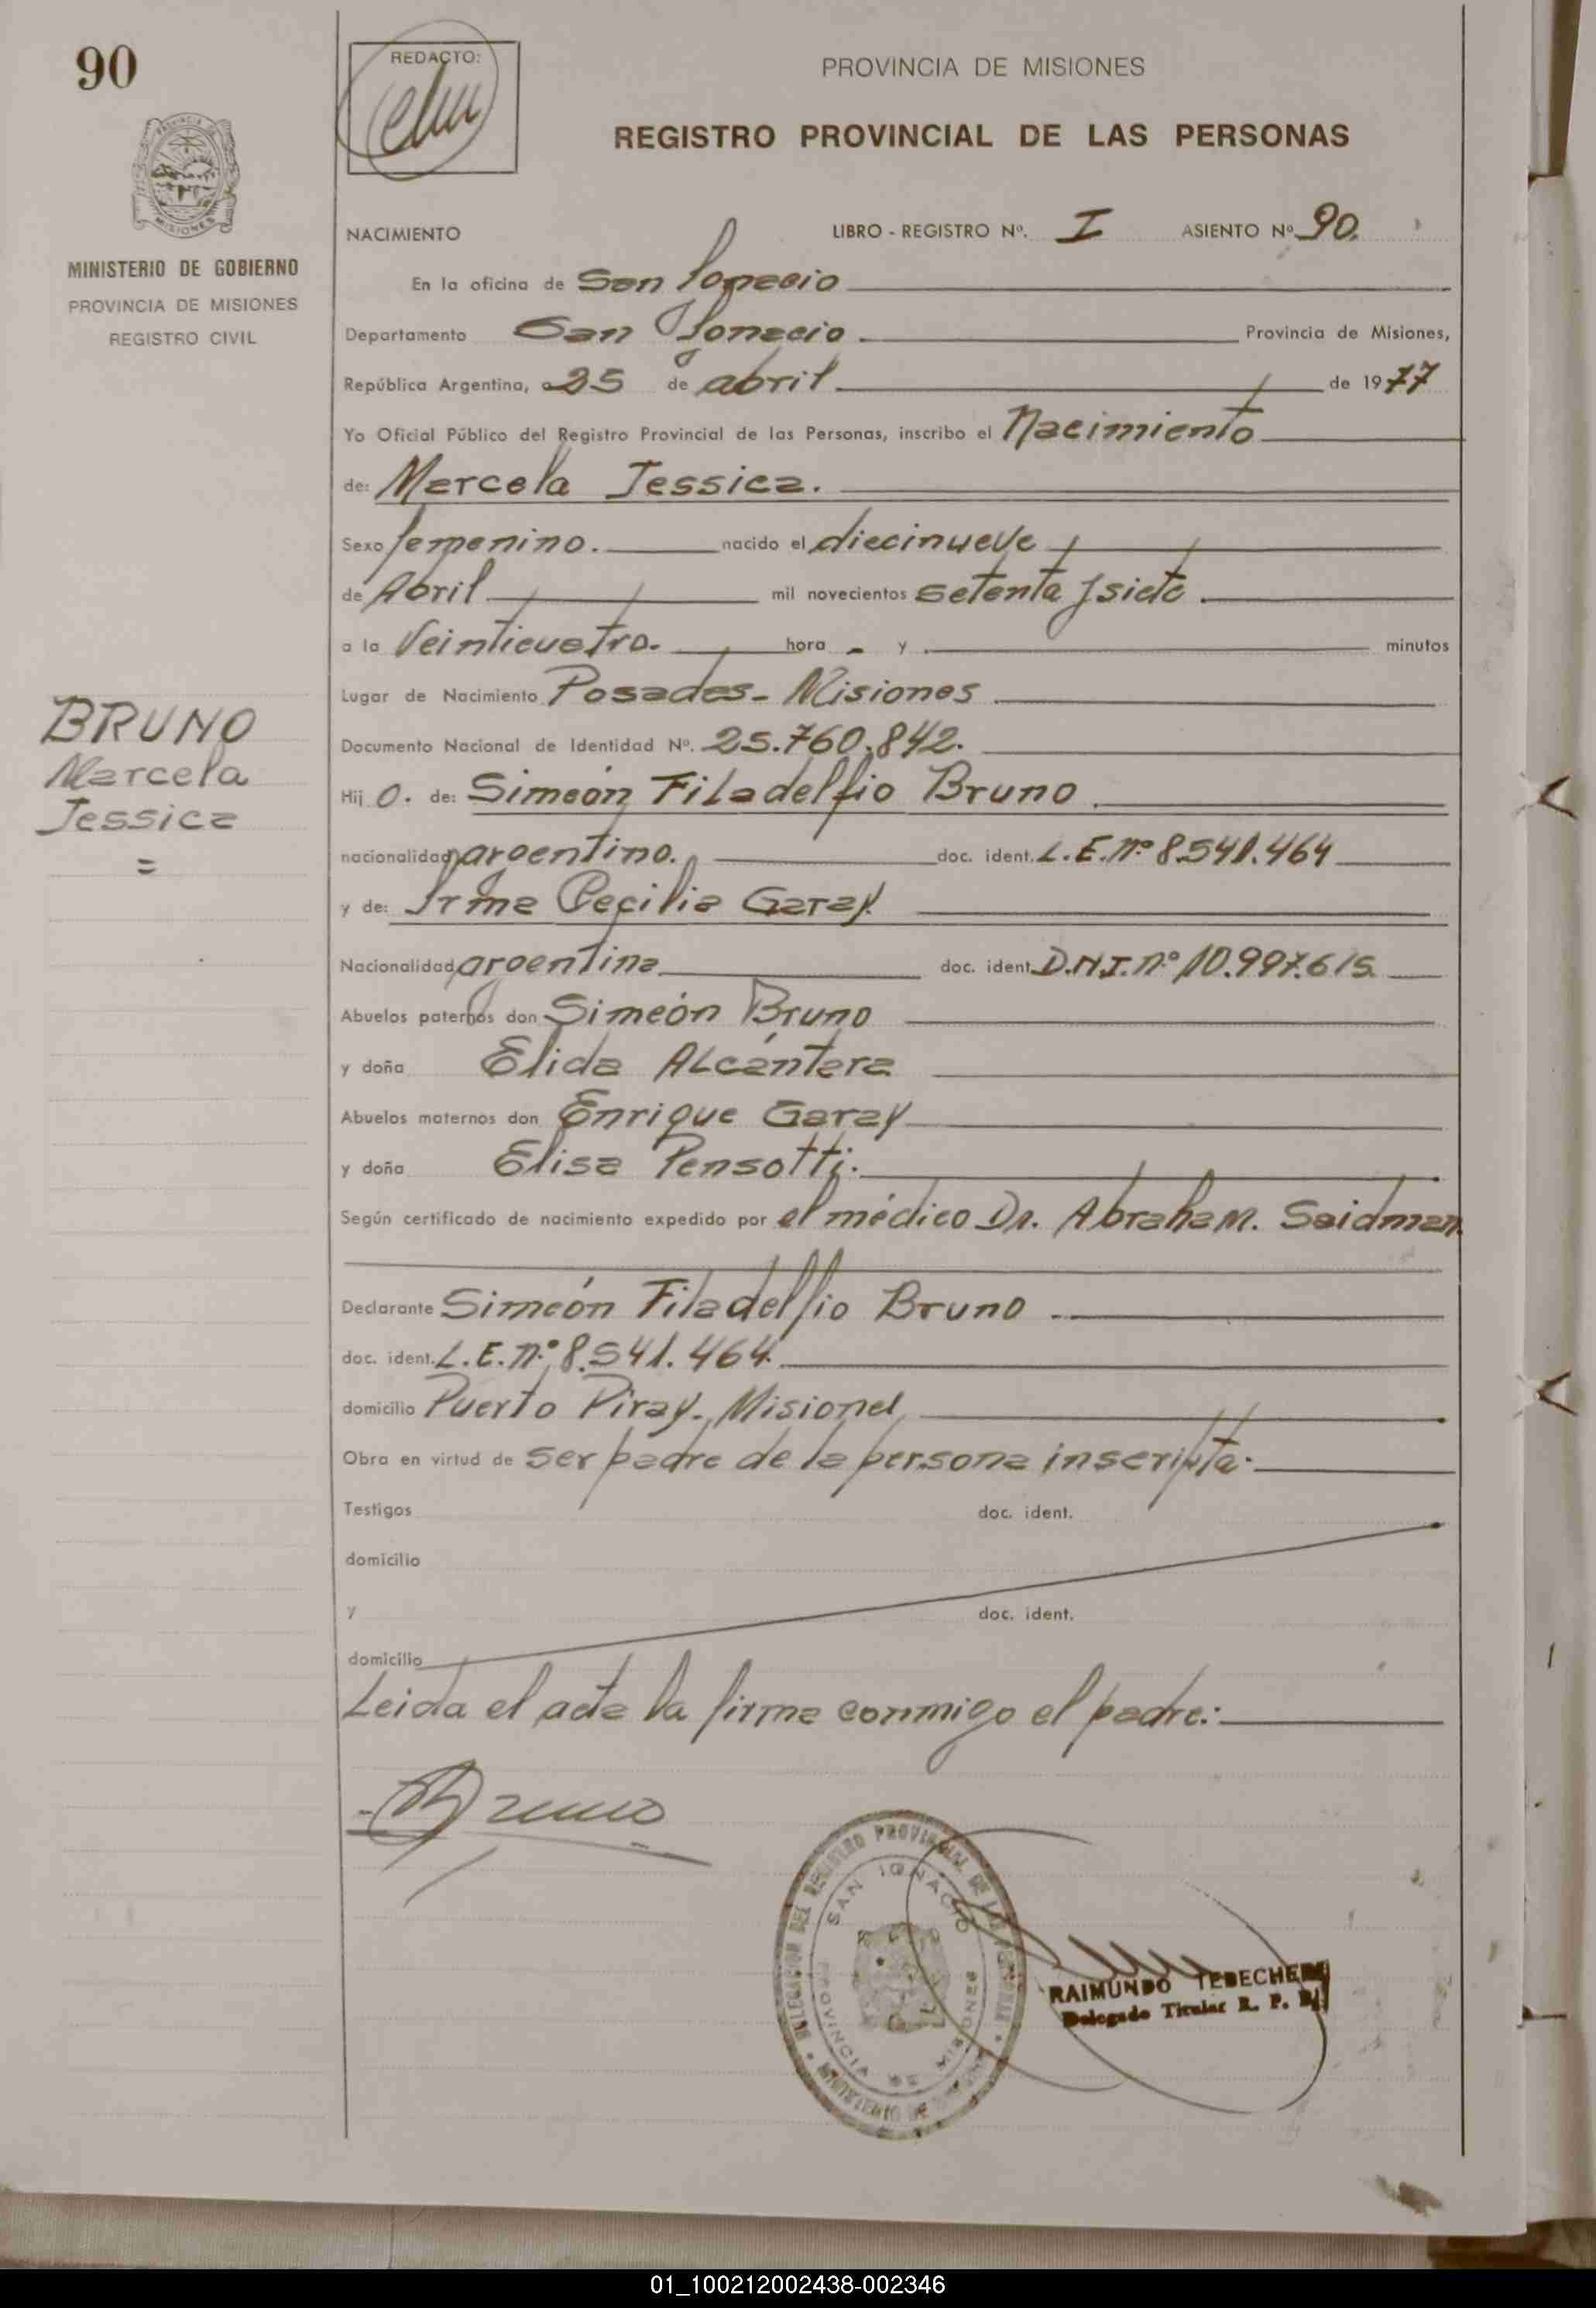 90
REDACTO:
PROVINCIA DE MISIONES
REGISTRO PROVINCIAL DE LAS PERSONAS
MISIONES
MINISTERIO DE GOBIERNO
PROVINCIA DE MISIONES
REGISTRO CIVIL
NACIMIENTO LIBRO - REGISTRO Nº. I ASIENTO Nº 90.
En la oficina de San Ignacio
Departamento San Ignacio. Provincia de Misiones,
República Argentina, a 25 de abril de 1977
Yo Oficial Público del Registro Provincial de las Personas, inscribo el Nacimiento
de: Marcela Jessica.
Sexo femenino. nacido el diecinueve
de Abril mil novecientos setenta y siete.
a la Veinticuatro. hora - y minutos
Lugar de Nacimiento Posadas - Misiones
Documento Nacional de Identidad Nº. 25.760.842.
BRUNO
Marcela
Jessica
=
Hij o. de: Simeón Filadelfio Bruno.
nacionalidad argentino. doc. ident. L.E.nº 8.541.464
y de: Irma Cecilia Garay.
Nacionalidad argentina doc. ident. D.N.I. nº 10.997.615.
Abuelos paternos don Simeón Bruno
y doña Elida Alcántara
Abuelos maternos don Enrique Garay
y doña Elisa Pensotti.
Según certificado de nacimiento expedido por el médico Dr. Abraham. Saidman.
Declarante Simeón Filadelfio Bruno.
doc. ident. L.E. nº 8.541.464.
domicilio Puerto Piray. Misiones
Obra en virtud de ser padre de la persona inscripta.
Testigos doc. ident.
domicilio
y doc. ident.
domicilio
Leida el acta la firma conmigo el padre:
Bruno
DELEGACION DEL REGISTRO PROVINCIAL DE LAS PERSONAS
SAN IGNACIO
PROVINCIA DE MISIONES
MINISTERIO DE
RAIMUNDO
Delegado Titular R. P. P.
01_100212002438-002346